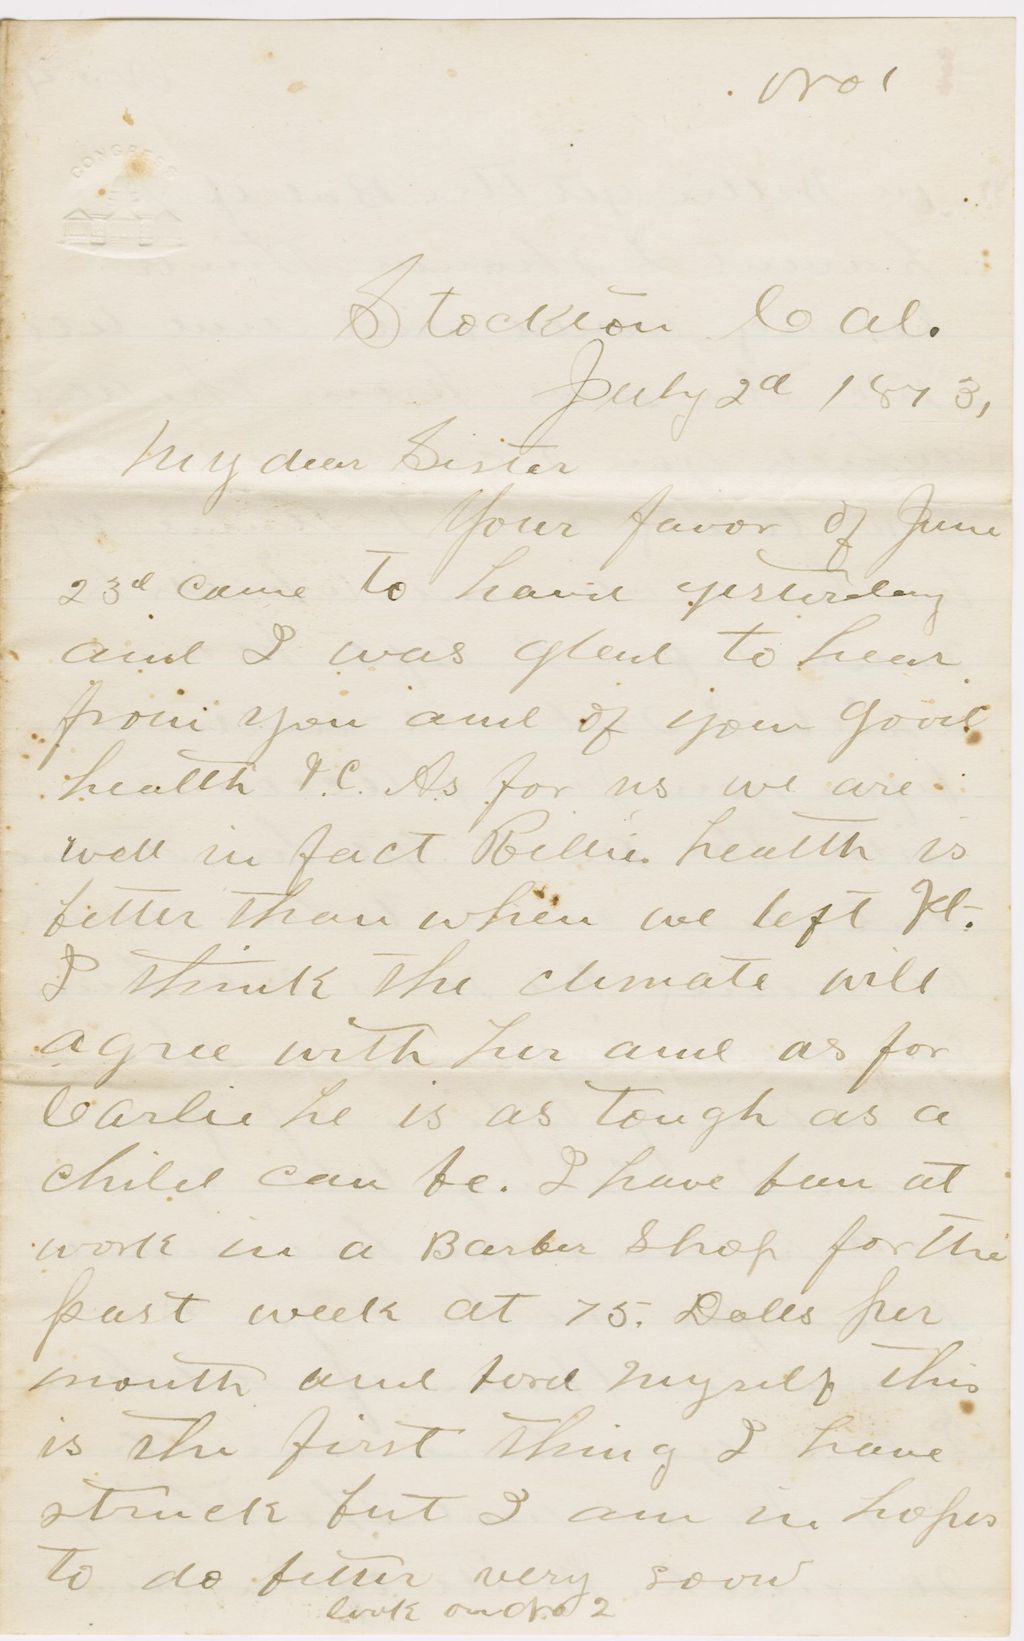 No 1
CONGRESS
Stockton Cal.
July 2d 1873,
My dear Sister
Your favor of June
23d came to hand yesterday
and I was glad to hear
from you and of your good
health &.C. As for us we are
well in fact health is
better than when we left
I think the climate will
agree with her and as for
Carlie he is as tough as a
child can be. I have ben at
work in a Barber Shop for the
past week at 75. Dolls per
month and bord myself this
is the first thing I have
struck but I am in hopes
to do better very soon
look on No 2